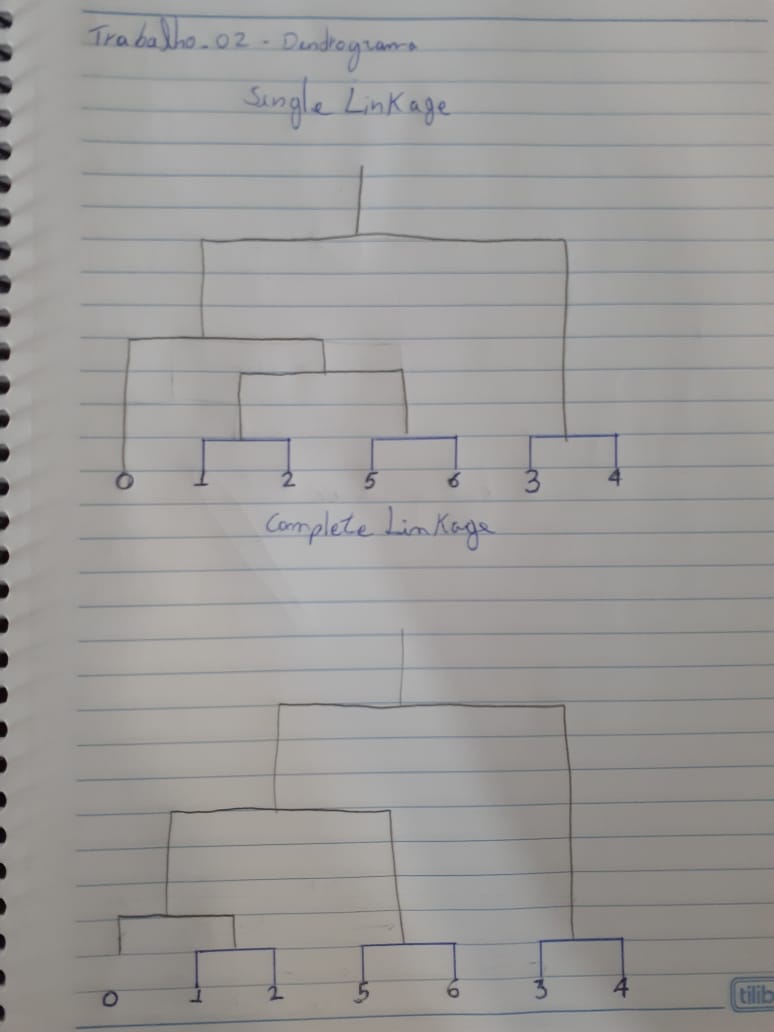 Trabalho_02 - Dendrograma
Single Linkage
0 1 2 5 6 3 4
Complete Linkage
0 1 2 5 6 3 4
tilib